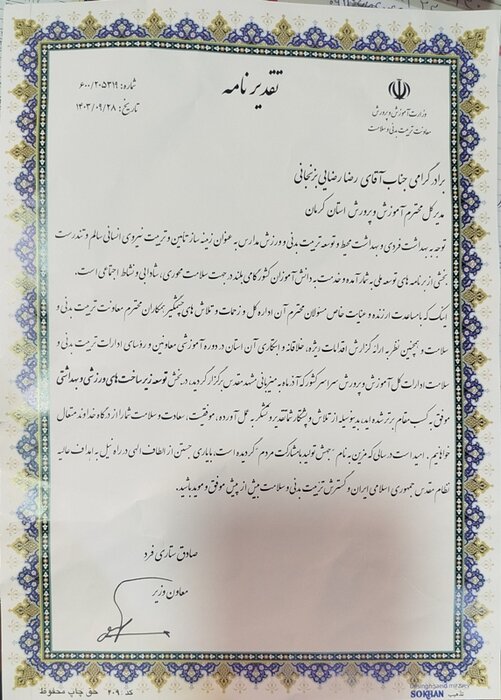 تقدیرنامه
شماره: ۶۰۰/۲۰۵۳۱۹
تاریخ: ۱۴۰۳/۰۹/۲۸
وزارت آموزش و پرورش
معاونت تربیت بدنی و سلامت
برادر گرامی جناب آقای رضا رضایی بزنجانی
مدیر کل محترم آموزش و پرورش استان کرمان
توجه به بهداشت فردی و بهداشت محیط و توسعه تربیت بدنی و ورزش مدارس به عنوان زمینه ساز تامین و تربیت نیروی انسانی سالم و تندرست
بخشی از برنامه های توسعه ملی به شمار آمده و خدمت به دانش آموزان کشور گامی بلند در جهت سلامت محوری، شادابی و نشاط اجتماعی است.
اینک که با مساعدت ارزنده و عنایت خاص مسئولان محترم آن اداره کل و زحمات و تلاش های چشمگیر همکاران محترم معاونت تربیت بدنی و
سلامت و همچنین نظر به ارائه گزارش اقدامات ویژه، خلاقانه و ابتکاری آن استان در دوره آموزشی معاونین و رؤسای ادارات تربیت بدنی و
سلامت ادارات کل آموزش و پرورش سراسر کشور که آذر ماه به میزبانی مشهد مقدس برگزار گردید، در بخش توسعه زیرساخت های ورزشی و بهداشتی
موفق به کسب مقام برتر شده اید، بدینوسیله از تلاش و پشتکار شما تقدیر و تشکر به عمل آورده، موفقیت، سعادت و سلامت شما را از درگاه خداوند متعال
خواهانیم. امید است در سالی که مزین به نام جهش تولید با مشارکت مردم گردیده است، با یاری جستن از الطاف الهی در راه نیل به اهداف عالیه
نظام مقدس جمهوری اسلامی ایران و گسترش تربیت بدنی و سلامت بیش از پیش موفق و موید باشید.
صادق ستاری فرد
معاون وزیر
کد: ۲۰۹ حق چاپ محفوظ
SOKHAN